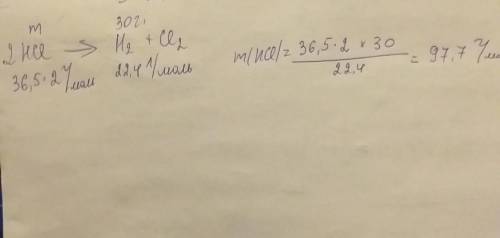 m 30г.
2HCl → H₂ + Cl₂
36,5·2 г/моль 22,4 л/моль
m(HCl) = 36,5·2 × 30 / 22,4 = 97,7 г/